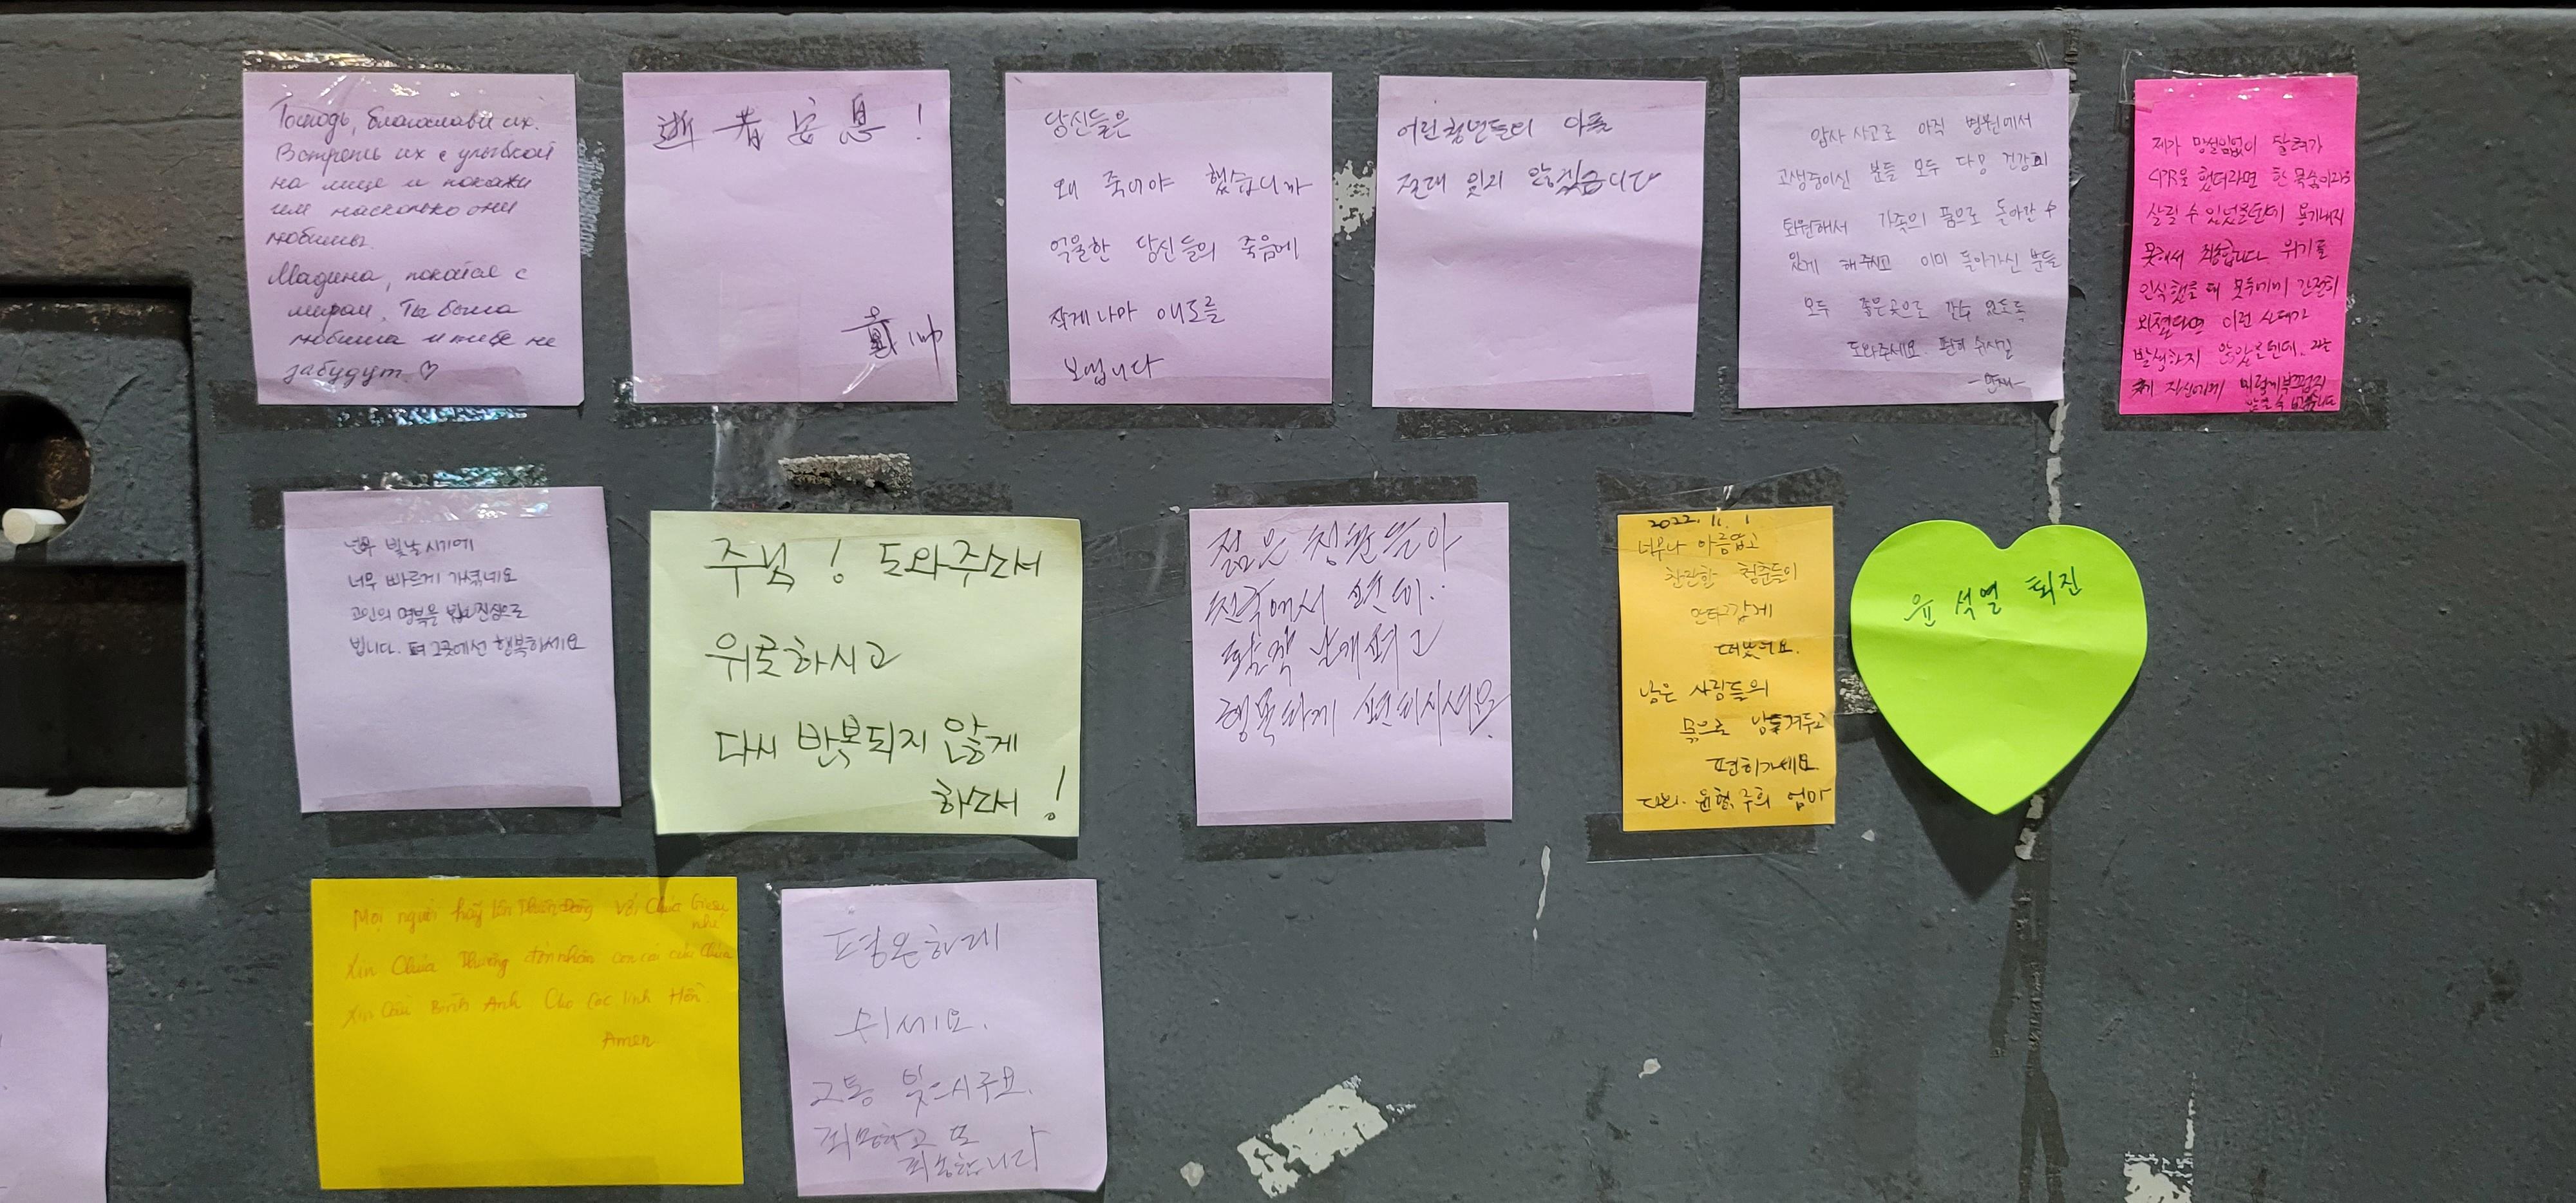 Господь, благослави их.
Встреть их с улыбкой
на лице и покажи
им насколько они
любимы.
Мадина, покойся с
миром. Ты была
любима и тебе не
забудут ♡
逝者安息！
戴帅
당신들은
왜 죽어야 했습니까
억울한 당신들의 죽음에
작게나마 애도를
보냅니다
어린 청년들의 아픔
절대 잊지 않겠습니다
압사 사고로 아직 병원에서
고생중이신 분들 모두 다 건강히
퇴원해서 가족의 품으로 돌아갈 수
있게 해주시고 이미 돌아가신 분들
모두 좋은곳으로 갈수 있도록
도와주세요. 편히 쉬시길
제가 망설임없이 달려가
CPR을 했더라면 한 목숨이라도
살릴 수 있었을텐데 용기내지
못해서 죄송합니다. 위기를
인식했을 때 못두에게 간절히
외쳤다면 이런 사태가
발생하지 않았을텐데. 저는
제 자신에게 부끄럽지
않을 수 없습니다
너무 빛날 시기에
너무 빠르게 가셨네요
고인의 명복을 진심으로
빕니다. 그곳에선 행복하세요
주님! 도와주소서
위로하시고
다시 반복되지 않게
하소서!
젊은 청춘들아
천국에서 편히..
활짝 날개펴고
행복하게 편히쉬세요.
2022. 11. 1
너무나 아름답고
찬란한 청춘들이
안타깝게
떠났네요.
남은 사람들의
몫으로 남겨두고
편히가세요.
윤형, 주희 엄마
윤석열 퇴진
Mọi người hãy lên Thiên Đàng với Chúa Giesu
nhé
Xin Chúa Thương đón nhận con cái của Chúa
Xin Cầu Bình Anh Cho Các linh Hồn.
Amen
평온하게
쉬세요.
고통 잊으시구요.
죄송합니다